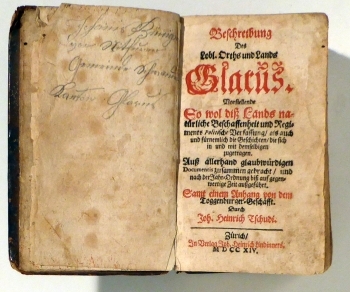 Kanton Glarus
Beschreibung
Des
Lobl. Orths und Lands
Glarus.
Vorstellende
So wol diß Lands na-
türliche Beschaffenheit und Regi-
ments Politische Verfassung/ als auch
und fürnemlich die Geschichten/ die sich
in und mit demselbigen
zugetragen.
Auß allerhand glaubwürdigen
Documentis zusammen gebracht/ und
nach der Jahr-Ordnung biß auf gegen-
wertige Zeit außgeführt.
Samt einem Anhang von dem
Toggenburger-Geschäfft.
Durch
Joh. Heinrich Tschudi.
Zürich/
In Verlag Joh. Heinrich Lindinners.
M D CC XIV.